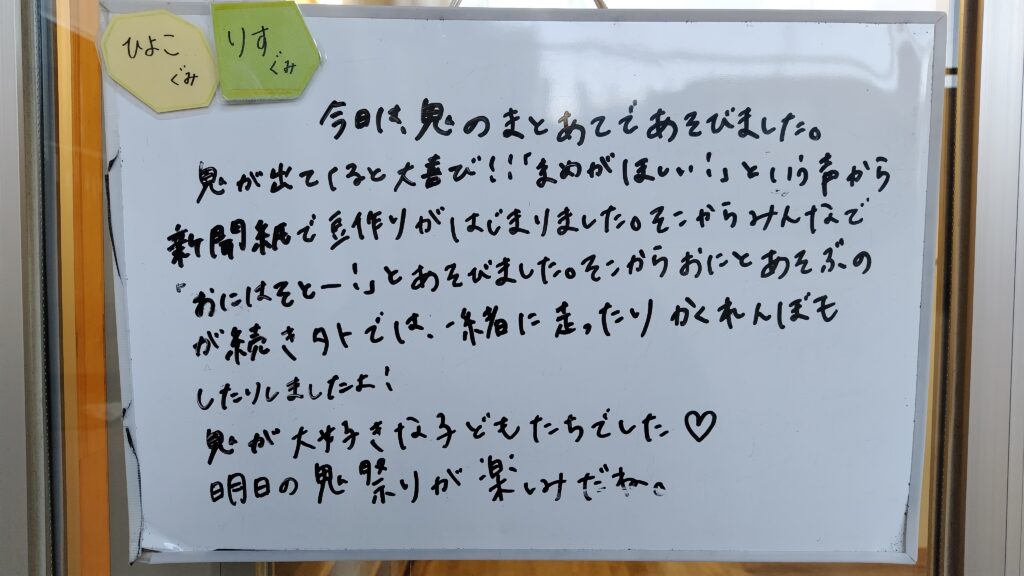 ひよこ
ぐみ
りす
ぐみ
今日は、鬼のまとあてであそびました。
鬼が出てくると大喜び!!「まめがほしい!」という声から
新聞紙で豆作りがはじまりました。そこからみんなで
「おにはそとー!」とあそびました。そこからおにとあそぶの
が続き外では、一緒に走ったりかくれんぼも
したりしましたよ!
鬼が大好きな子どもたちでした♡
明日の鬼祭りが楽しみだね。